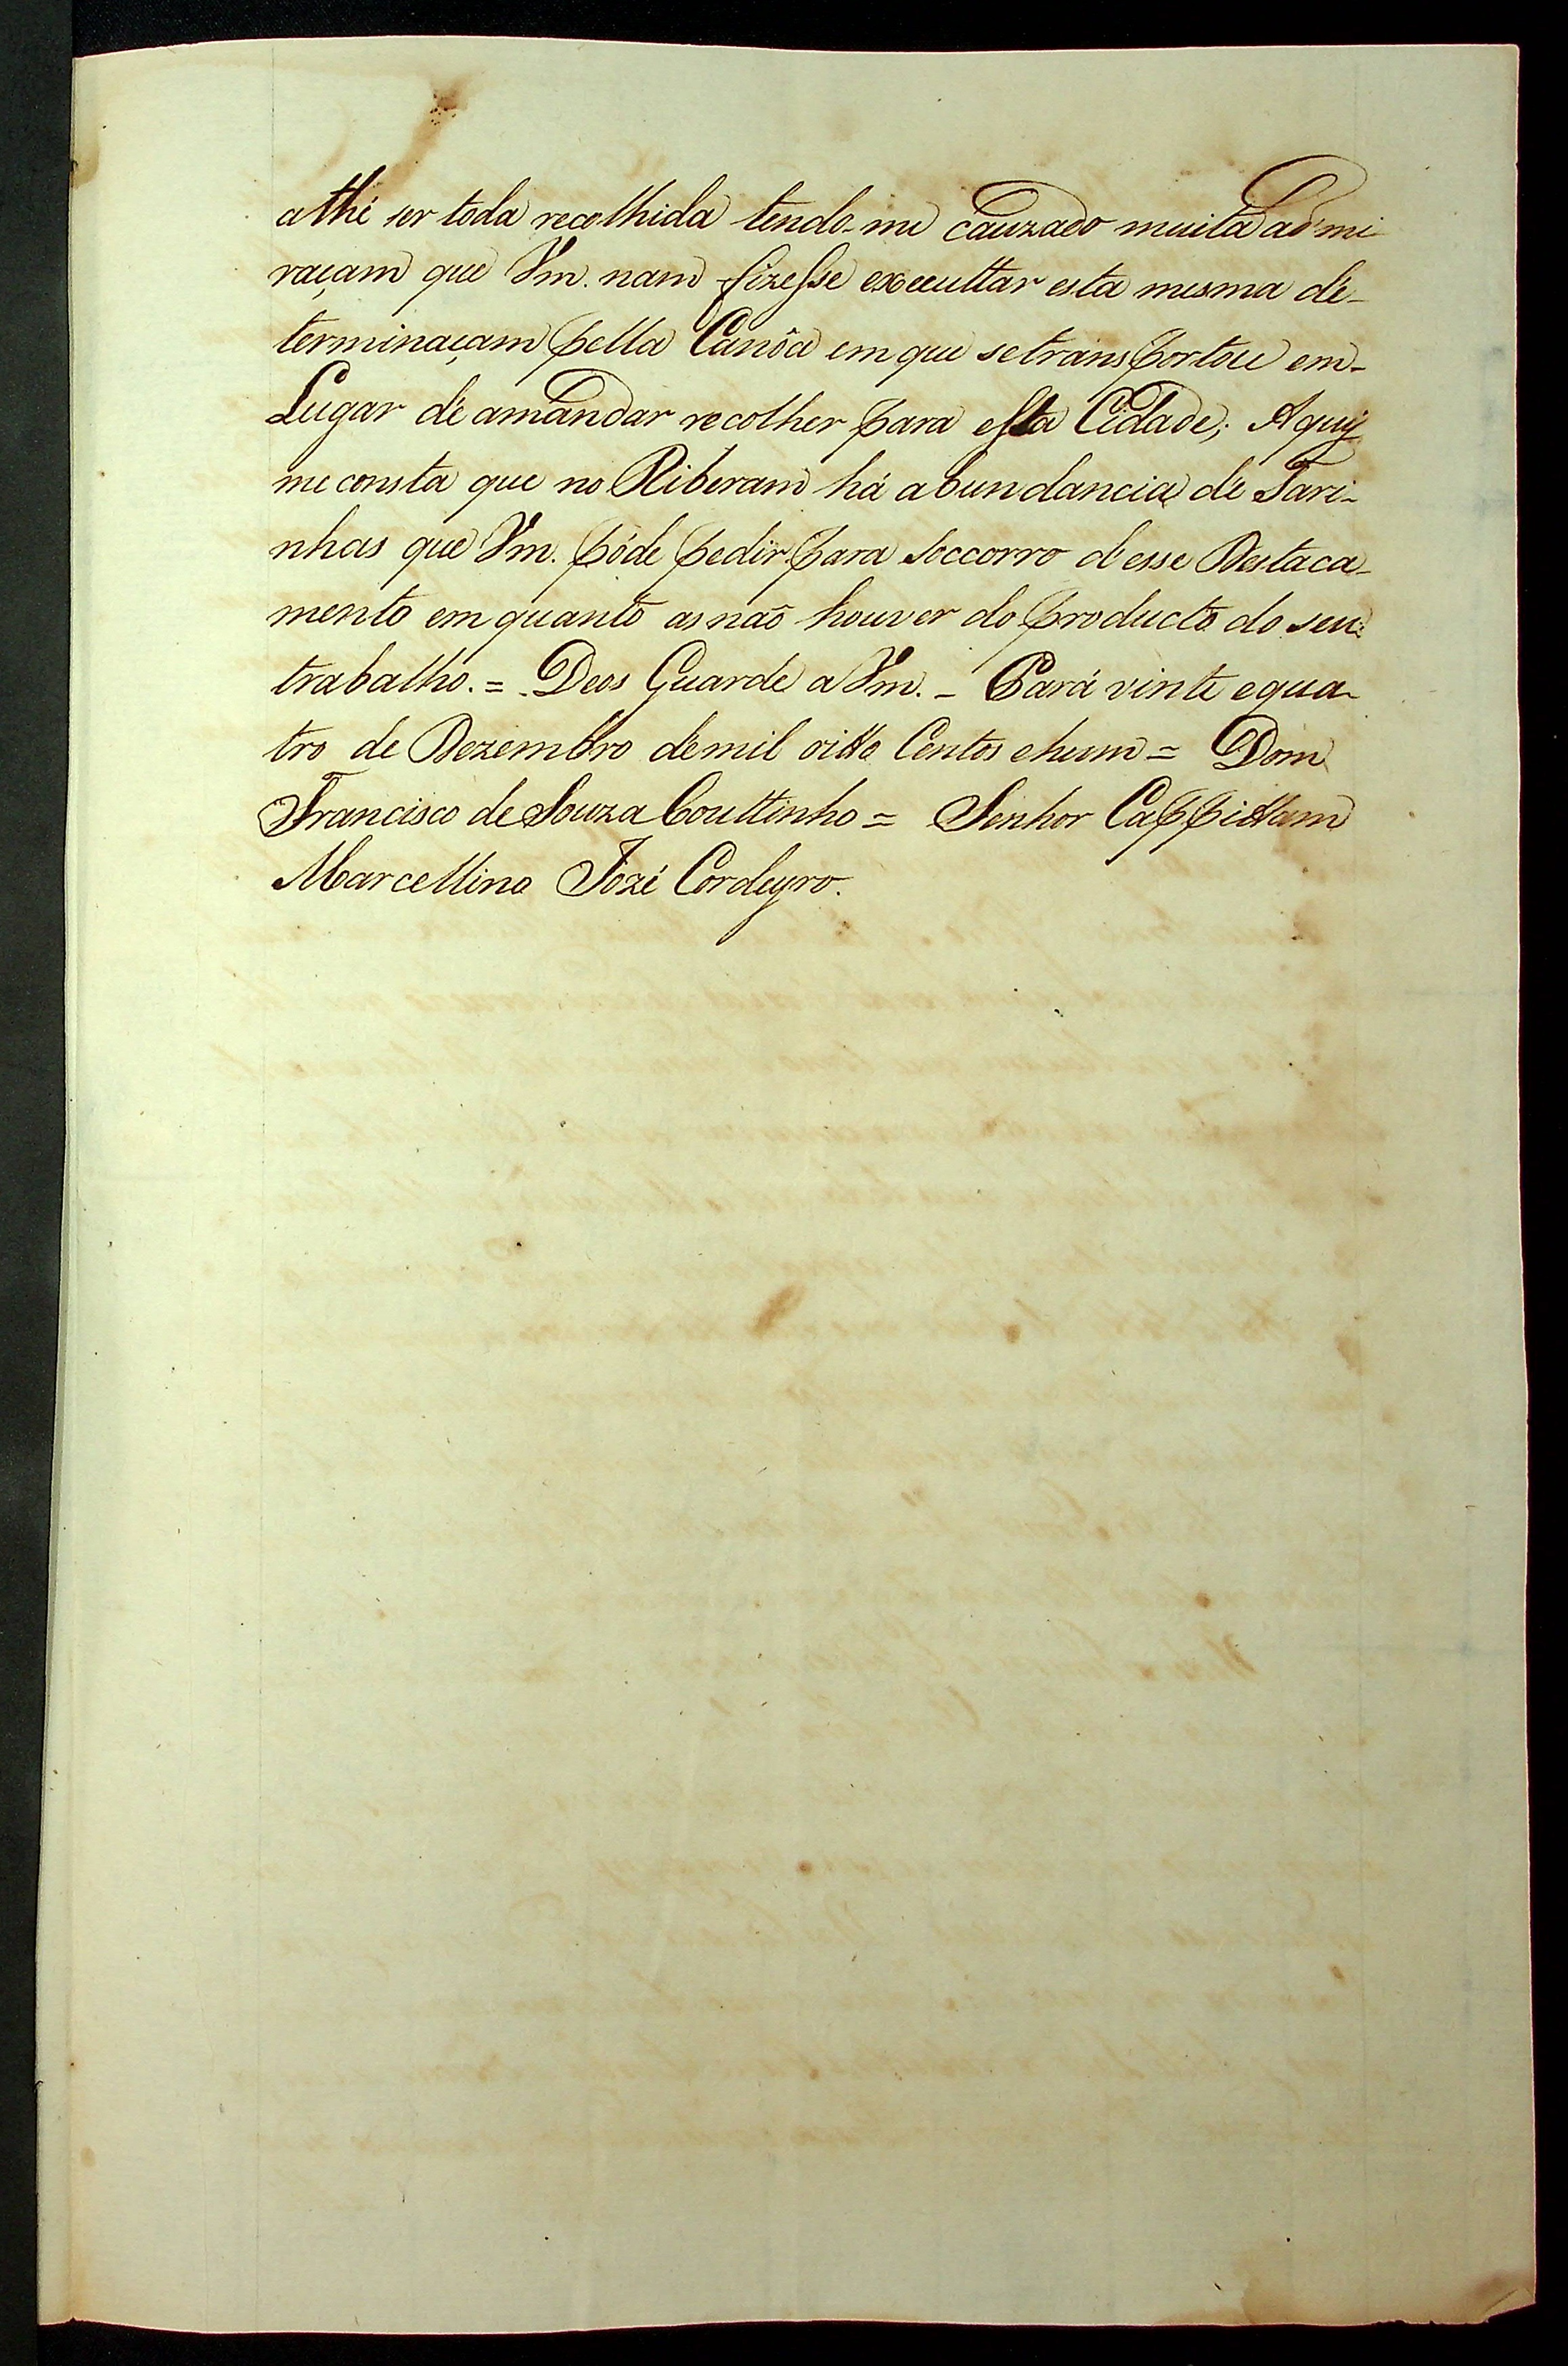 athé ser toda recolhida tendo-me cauzado muita admi-
raçam que Vm. nam fizesse executtar esta mesma de-
terminaçam pella Canôa em que setransportou em-
Lugar de amandar recolher para esta Cidade; Aqui
me consta que no Riberam há abundancia de Fari-
nhas que Vm. póde pedir para soccorro desse Destaca-
mento em quanto as naõ houver do producto do seu
trabalho. = Deos Guarde a Vm. - Pará vinte equa-
tro de Dezembro demil oitto Centos ehum = Dom
Francisco de Souza Couttinho = Senhor Cappittam
Marcellino Jozé Cordeyro.